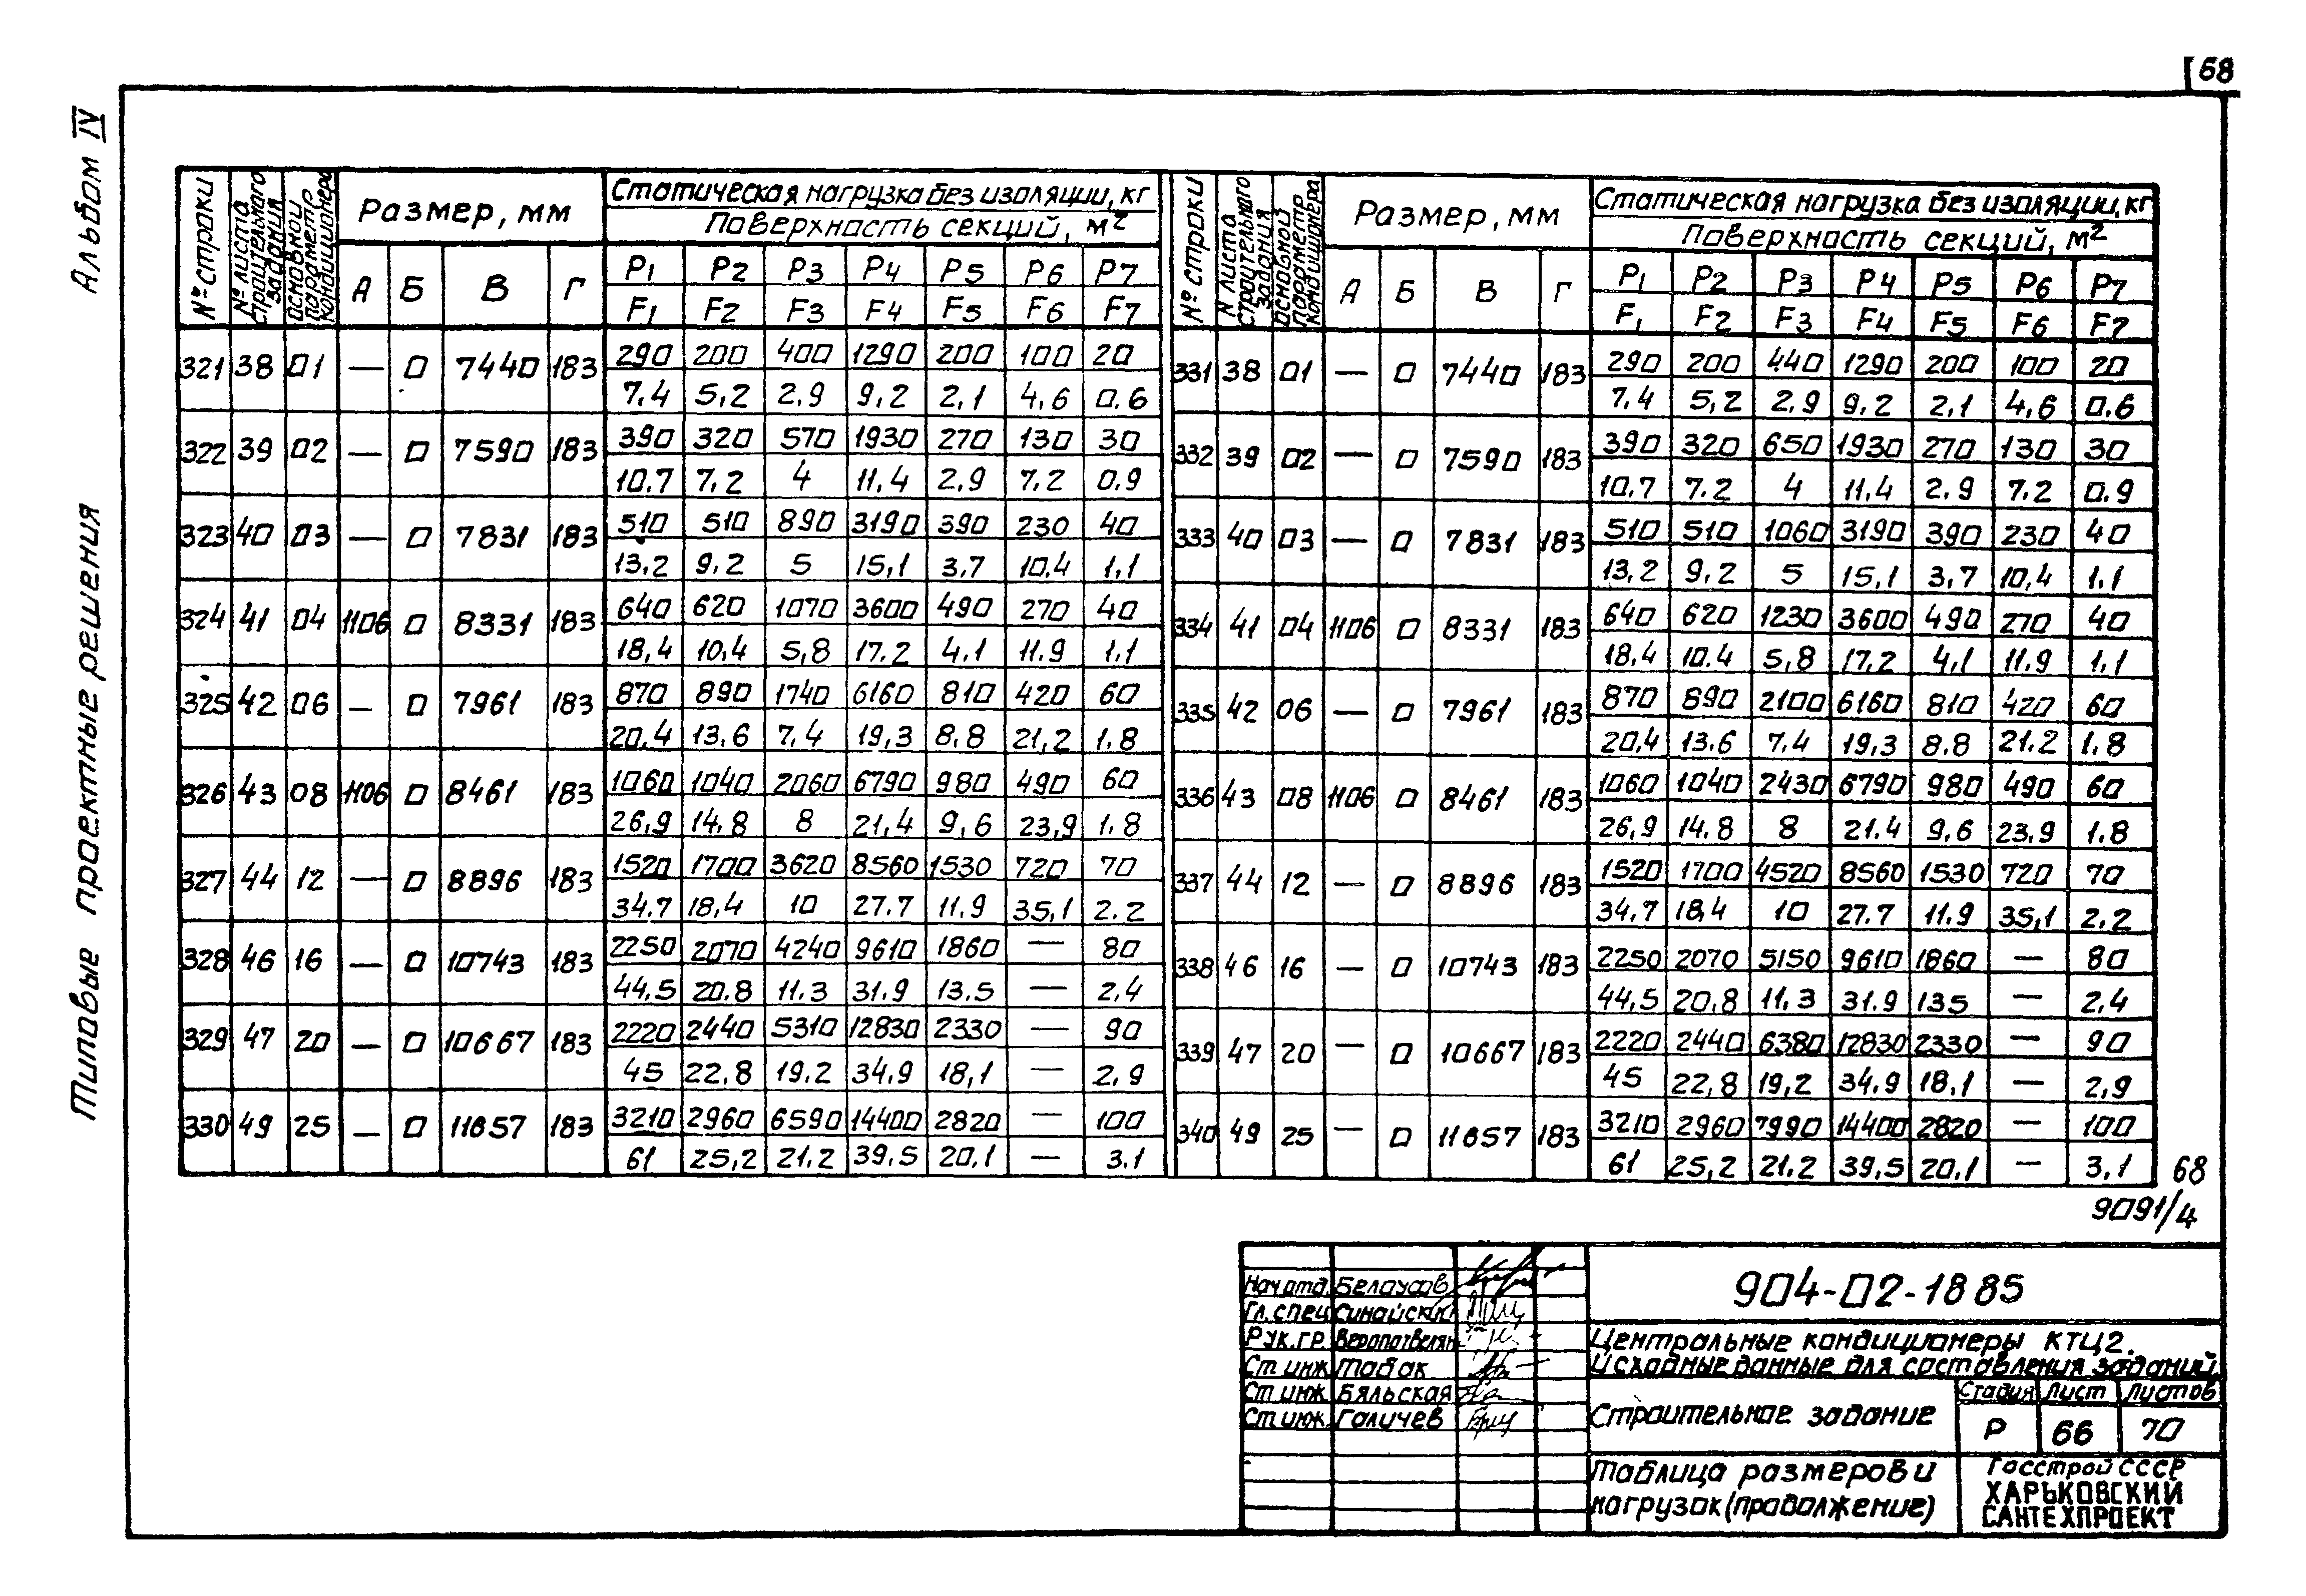 68
Альбом IV
Типовые проектные решения
№ строки | № листа строительного задания | основной параметр кондиционера | Размер, мм | Статическая нагрузка без изоляции, кг
Поверхность секций, м²
А | Б | В | Г | P1 | P2 | P3 | P4 | P5 | P6 | P7
F1 | F2 | F3 | F4 | F5 | F6 | F7
321 | 38 | 01 | — | 0 | 7440 | 183 | 290 | 200 | 400 | 1290 | 200 | 100 | 20
7.4 | 5,2 | 2.9 | 9,2 | 2,1 | 4,6 | 0.6
322 | 39 | 02 | — | 0 | 7590 | 183 | 390 | 320 | 570 | 1930 | 270 | 130 | 30
10.7 | 7,2 | 4 | 11,4 | 2,9 | 7,2 | 0.9
323 | 40 | 03 | — | 0 | 7831 | 183 | 510 | 510 | 890 | 3190 | 390 | 230 | 40
13,2 | 9,2 | 5 | 15,1 | 3,7 | 10.4 | 1,1
324 | 41 | 04 | 1106 | 0 | 8331 | 183 | 640 | 620 | 1070 | 3600 | 490 | 270 | 40
18,4 | 10,4 | 5,8 | 17.2 | 4.1 | 11.9 | 1.1
325 | 42 | 06 | — | 0 | 7961 | 183 | 870 | 890 | 1740 | 6160 | 810 | 420 | 60
20,4 | 13,6 | 7,4 | 19,3 | 8,8 | 21,2 | 1.8
326 | 43 | 08 | 1106 | 0 | 8461 | 183 | 1060 | 1040 | 2060 | 6790 | 980 | 490 | 60
26,9 | 14,8 | 8 | 21,4 | 9,6 | 23,9 | 1.8
327 | 44 | 12 | — | 0 | 8896 | 183 | 1520 | 1700 | 3620 | 8560 | 1530 | 720 | 70
34.7 | 18,4 | 10 | 27.7 | 11.9 | 35,1 | 2.2
328 | 46 | 16 | — | 0 | 10743 | 183 | 2250 | 2070 | 4240 | 9610 | 1860 | — | 80
44,5 | 20.8 | 11.3 | 31.9 | 13.5 | — | 2,4
329 | 47 | 20 | — | 0 | 10667 | 183 | 2220 | 2440 | 5310 | 12830 | 2330 | — | 90
45 | 22,8 | 19.2 | 34.9 | 18,1 | — | 2,9
330 | 49 | 25 | — | 0 | 11657 | 183 | 3210 | 2960 | 6590 | 14400 | 2820 | — | 100
61 | 25,2 | 21.2 | 39,5 | 20,1 | — | 3.1
№ строки | N листа строительного задания | основной параметр кондиционера | Размер, мм | Статическая нагрузка без изоляции, кг
Поверхность секций, м²
А | Б | В | Г | P1 | P2 | P3 | P4 | P5 | P6 | P7
F1 | F2 | F3 | F4 | F5 | F6 | F7
331 | 38 | 01 | — | 0 | 7440 | 183 | 290 | 200 | 440 | 1290 | 200 | 100 | 20
7.4 | 5,2 | 2.9 | 9.2 | 2,1 | 4,6 | 0.6
332 | 39 | 02 | — | 0 | 7590 | 183 | 390 | 320 | 650 | 1930 | 270 | 130 | 30
10,7 | 7.2 | 4 | 11,4 | 2.9 | 7.2 | 0.9
333 | 40 | 03 | — | 0 | 7831 | 183 | 510 | 510 | 1060 | 3190 | 390 | 230 | 40
13,2 | 9,2 | 5 | 15,1 | 3,7 | 10,4 | 1.1
334 | 41 | 04 | 1106 | 0 | 8331 | 183 | 640 | 620 | 1230 | 3600 | 490 | 270 | 40
18.4 | 10.4 | 5,8 | 17,2 | 4,1 | 11.9 | 1,1
335 | 42 | 06 | — | 0 | 7961 | 183 | 870 | 890 | 2100 | 6160 | 810 | 420 | 60
20,4 | 13.6 | 7,4 | 19,3 | 8.8 | 21.2 | 1.8
336 | 43 | 08 | 1106 | 0 | 8461 | 183 | 1060 | 1040 | 2430 | 6790 | 980 | 490 | 60
26,9 | 14.8 | 8 | 21.4 | 9.6 | 23.9 | 1.8
337 | 44 | 12 | — | 0 | 8896 | 183 | 1520 | 1700 | 4520 | 8560 | 1530 | 720 | 70
34,7 | 18,4 | 10 | 27.7 | 11.9 | 35,1 | 2,2
338 | 46 | 16 | — | 0 | 10743 | 183 | 2250 | 2070 | 5150 | 9610 | 1860 | — | 80
44,5 | 20,8 | 11,3 | 31.9 | 135 | — | 2,4
339 | 47 | 20 | — | 0 | 10667 | 183 | 2220 | 2440 | 6380 | 12830 | 2330 | — | 90
45 | 22,8 | 19,2 | 34.9 | 18,1 | — | 2,9
340 | 49 | 25 | — | 0 | 11657 | 183 | 3210 | 2960 | 7990 | 14400 | 2820 | — | 100
61 | 25,2 | 21.2 | 39,5 | 20,1 | — | 3,1
68
9091/4
Нач отд. Белоусов
Гл. спец Синайский
Рук. гр.
Ст инж Табак
Ст инж. Бяльская
Ст инж. Галичев
904-02-18 85
Центральные кондиционеры КТЦ2.
Исходные данные для составления заданий
Строительное задание
Стадия | Лист | Листов
Р | 66 | 70
Таблица размеров и
нагрузок (продолжение)
Госстрой СССР
ХАРЬКОВСКИЙ
САНТЕХПРОЕКТ